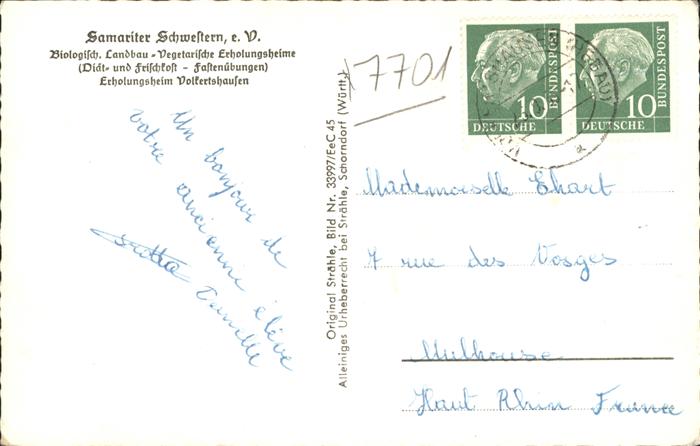 Samariter Schwestern, e. V.
Biologisch. Landbau - Vegetarische Erholungsheime
(Diät- und Frischkost - Fastenübungen)
Erholungsheim Volkertshausen
Un bonjour de
votre ancienne élève
Danielle
Original Strähle, Bild Nr. 33997/EeC 45
Alleiniges Urheberrecht bei Strähle, Schorndorf (Württ.)
7701
10
DEUTSCHE
BUNDESPOST
10
DEUTSCHE
BUNDESPOST
Mademoiselle Ehart
7 rue des Vosges
Mulhouse
Haut Rhin France